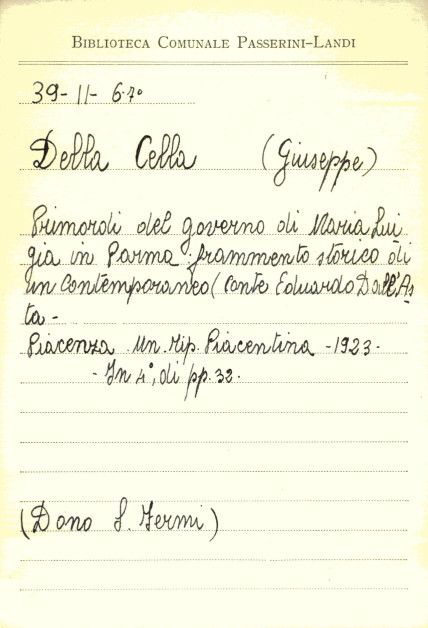 BIBLIOTECA COMUNALE PASSERINI-LANDI
39-11-6.7º
Della Cella (Giuseppe)
Primordi del governo di Maria Lui
gia in Parma: frammento storico di
un contemporaneo (Conte Eduardo Dall'As
ta-
Piacenza Un. tip. Piacentina - 1923 -
- In 4º, di pp. 32.
(Dono S. Fermi)